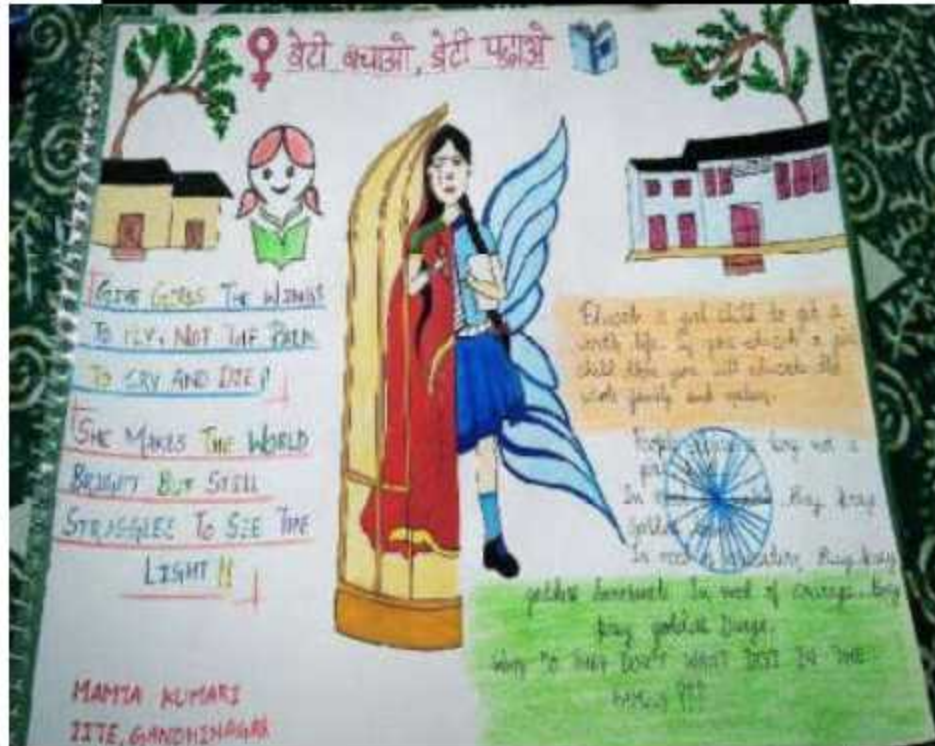 बेटी बचाओ, बेटी पढ़ाओ
GIVE GIRLS THE WINGS
TO FLY, NOT THE PAIN
TO CRY AND DIE!
SHE MAKES THE WORLD
BRIGHT BUT STILL
STRUGGLES TO SEE THE
LIGHT!!
Educate a girl child to get a
worth life. if you educate a
child then you will educate the
whole family and nation.
People a boy not a
In Pray
In need Pray
goddess Saraswati. In need of courage, they
pray goddess Durga.
WHY DO THEY DON'T WANT THE
FAMILY???
MAMTA KUMARI
IITE, GANDHINAGAR